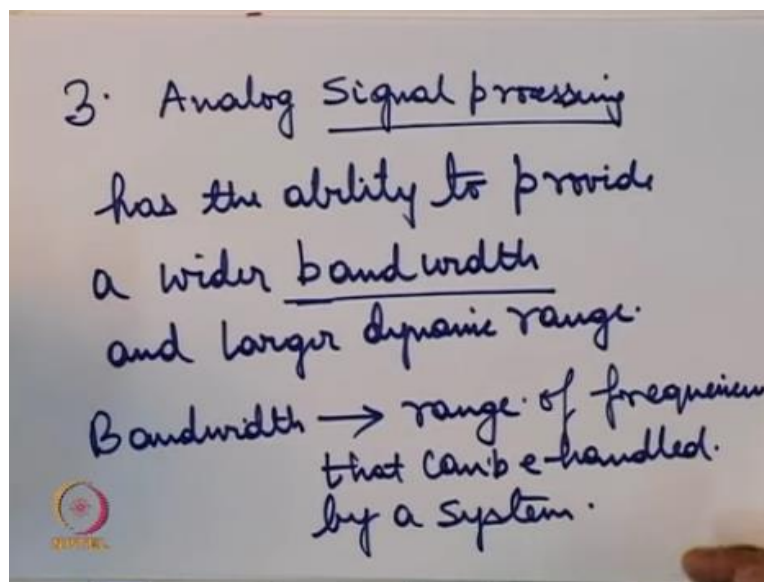 3. Analog Signal processing
has the ability to provide
a wider bandwidth
and larger dynamic range.
Bandwidth → range of frequencies
that can be handled.
by a system.
NPTEL